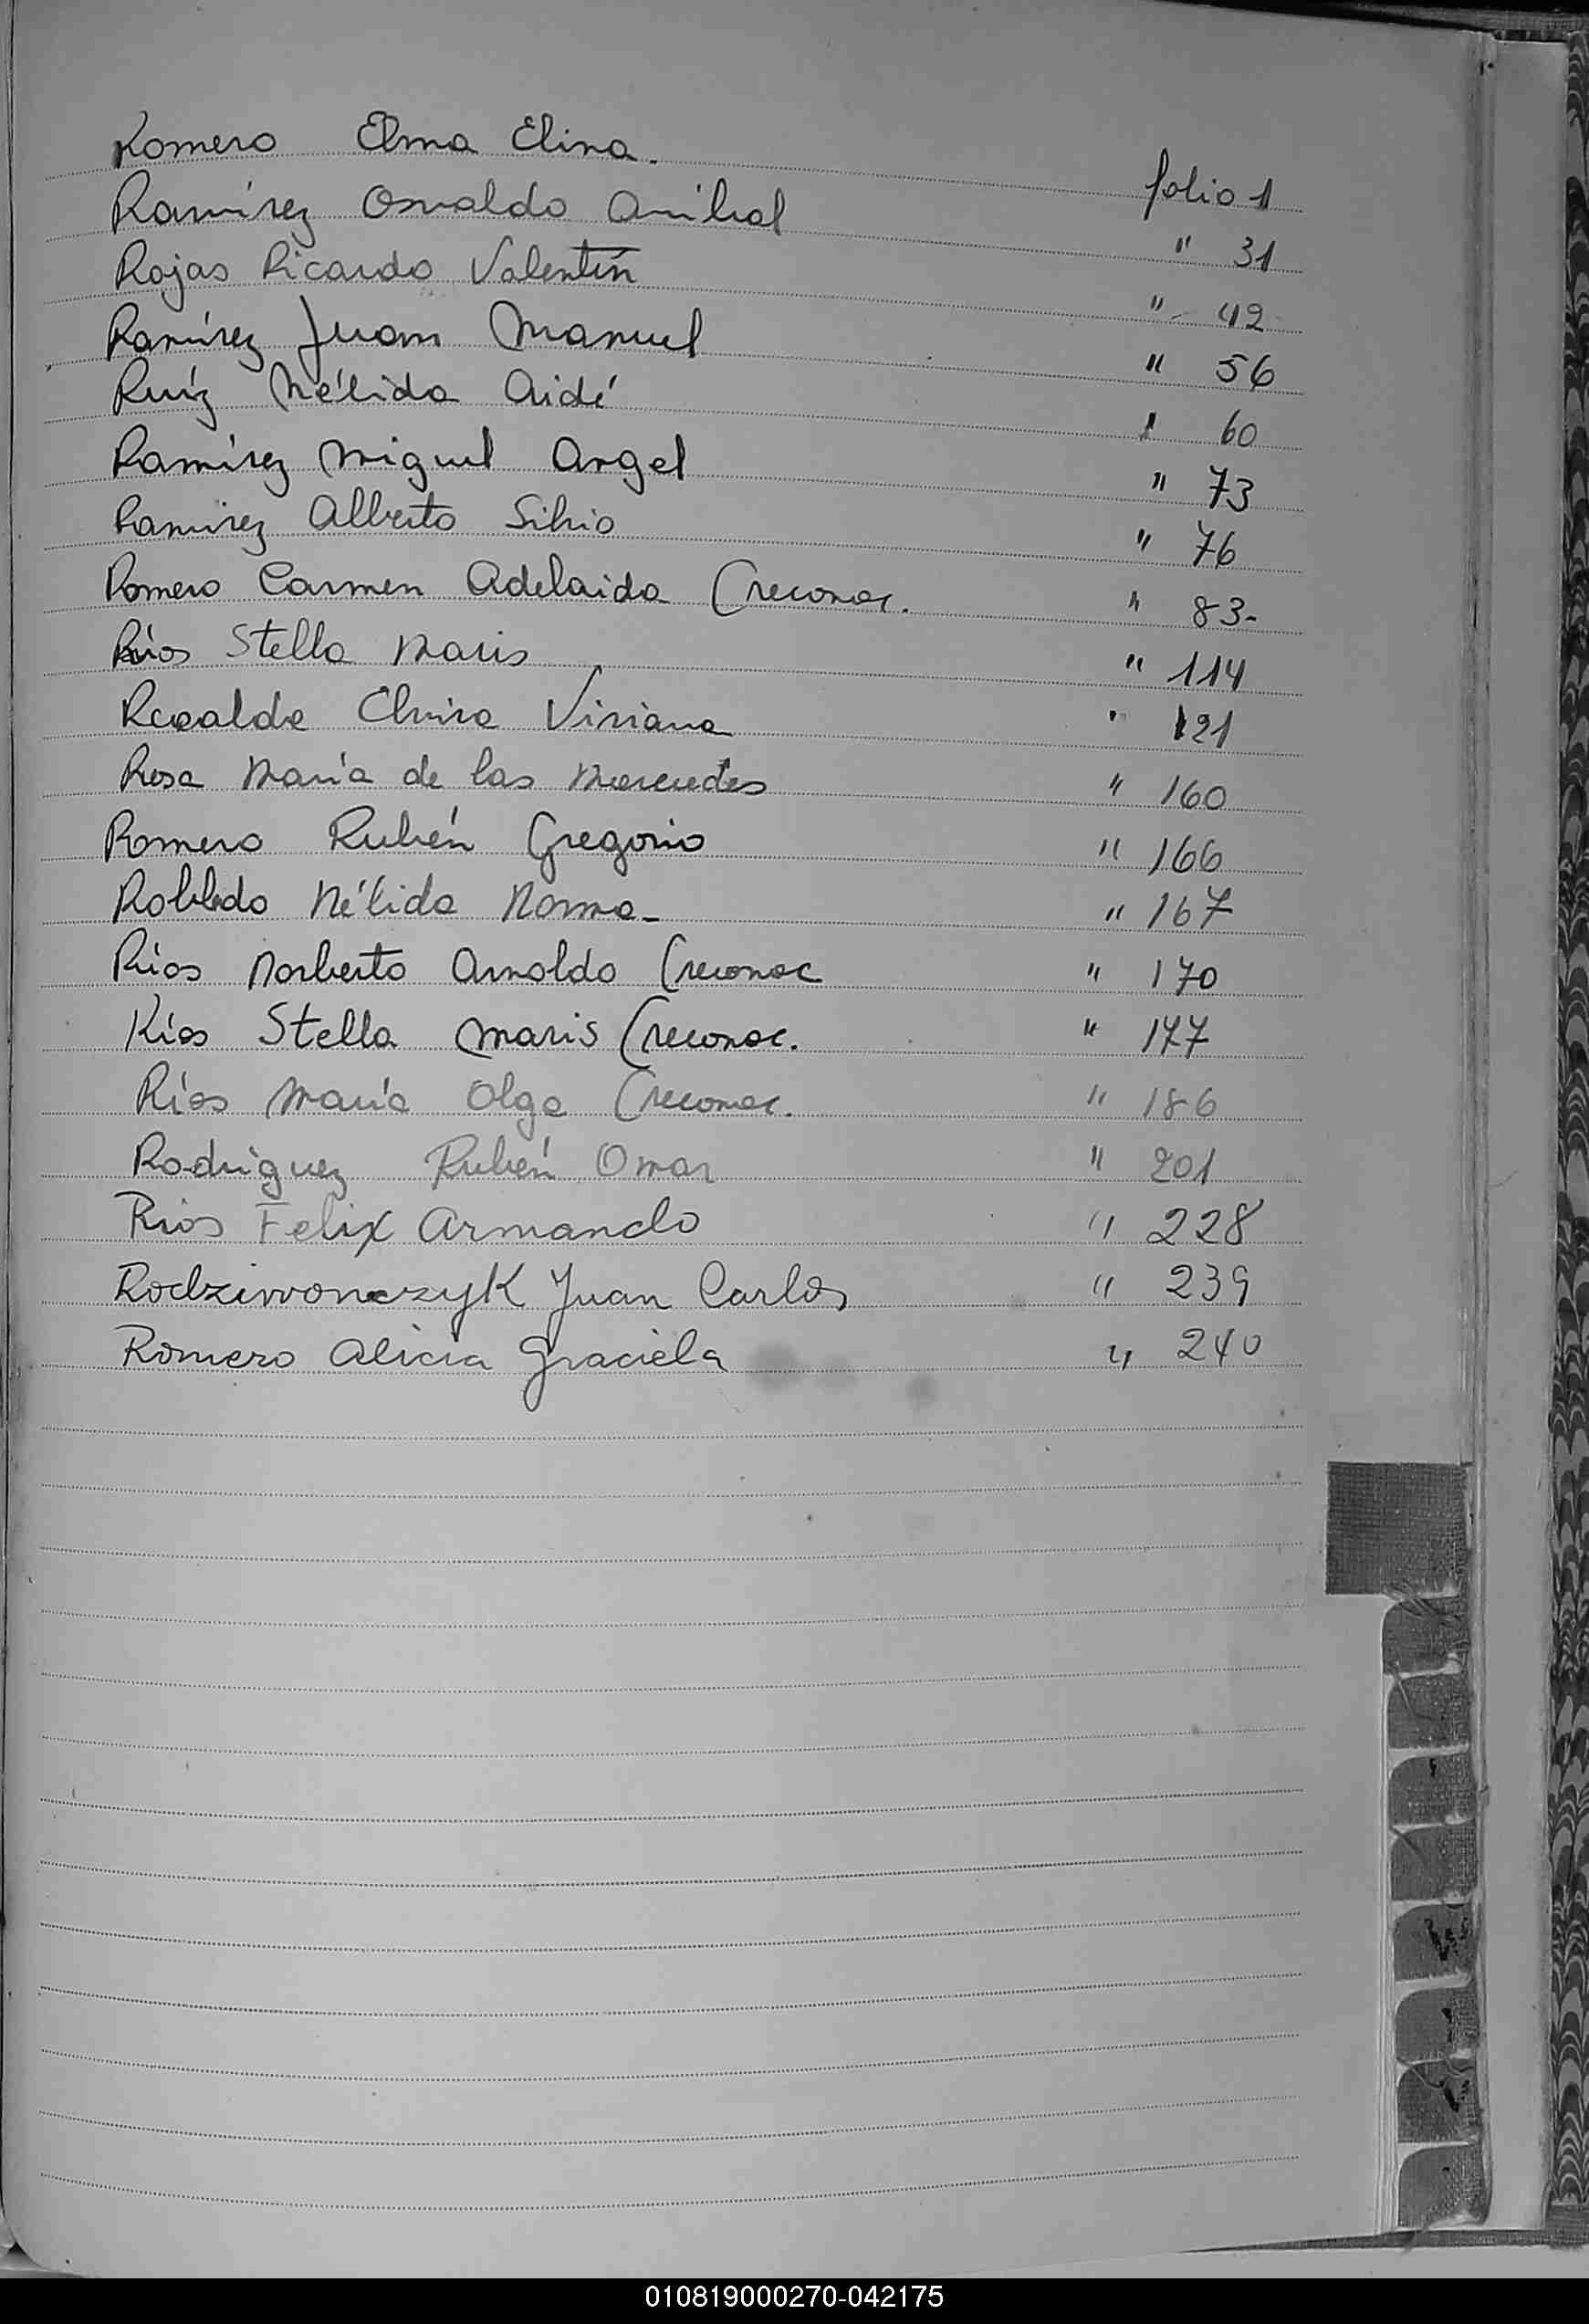 Romero Elma Elina. folio 1
Ramírez Osvaldo Anibal " 31
Rojas Ricardo Valentín " - 42
Ramírez Juan Manuel " 56
Ruíz Nélida Aidé " 60
Ramírez Miguel Angel " 73
Ramirez Alberto Silvio " 76
Romero Carmen Adelaida (reconoc. " 83-
Ríos Stella Maris " 114
Elvira Viviana " 121
Rosa María de las Mercedes " 160
Romero Rubén Gregorio " 166
Robledo Nélida Norma- " 167
Ríos Norberto Arnoldo (reconoc " 170
Ríos Stella Maris (reconoc. " 177
Ríos María Olga (reconoc. " 186
Rodriguez Rubén Omar " 201
Rios Felix Armando " 228
Rodziwonczyk Juan Carlos " 239
Romero Alicia Graciela " 240
010819000270-042175